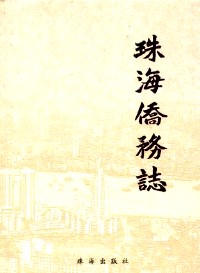 珠海僑務誌
珠海出版社